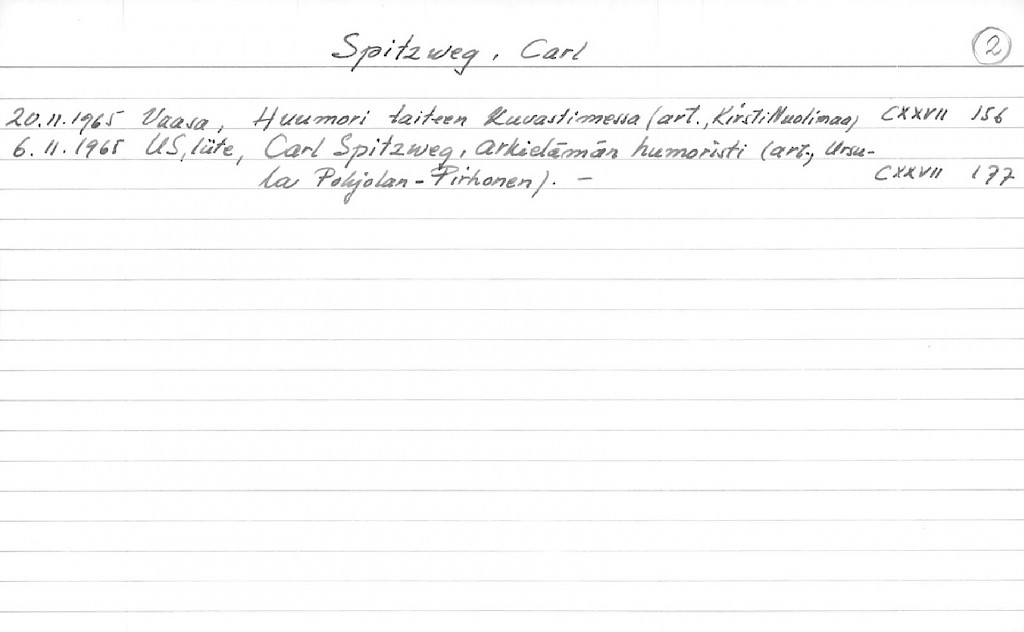 Spitzweg, Carl 2
20.11.1965 Vaasa, Huumori taiteen Kuvastimessa (art., Kirsti Nuolimaa) CXXVII 156
6.11.1965 US, liite, Carl Spitzweg, arkielämän humoristi (art., Ursu-
la Pohjolan-Pirhonen). – CXXVII 177